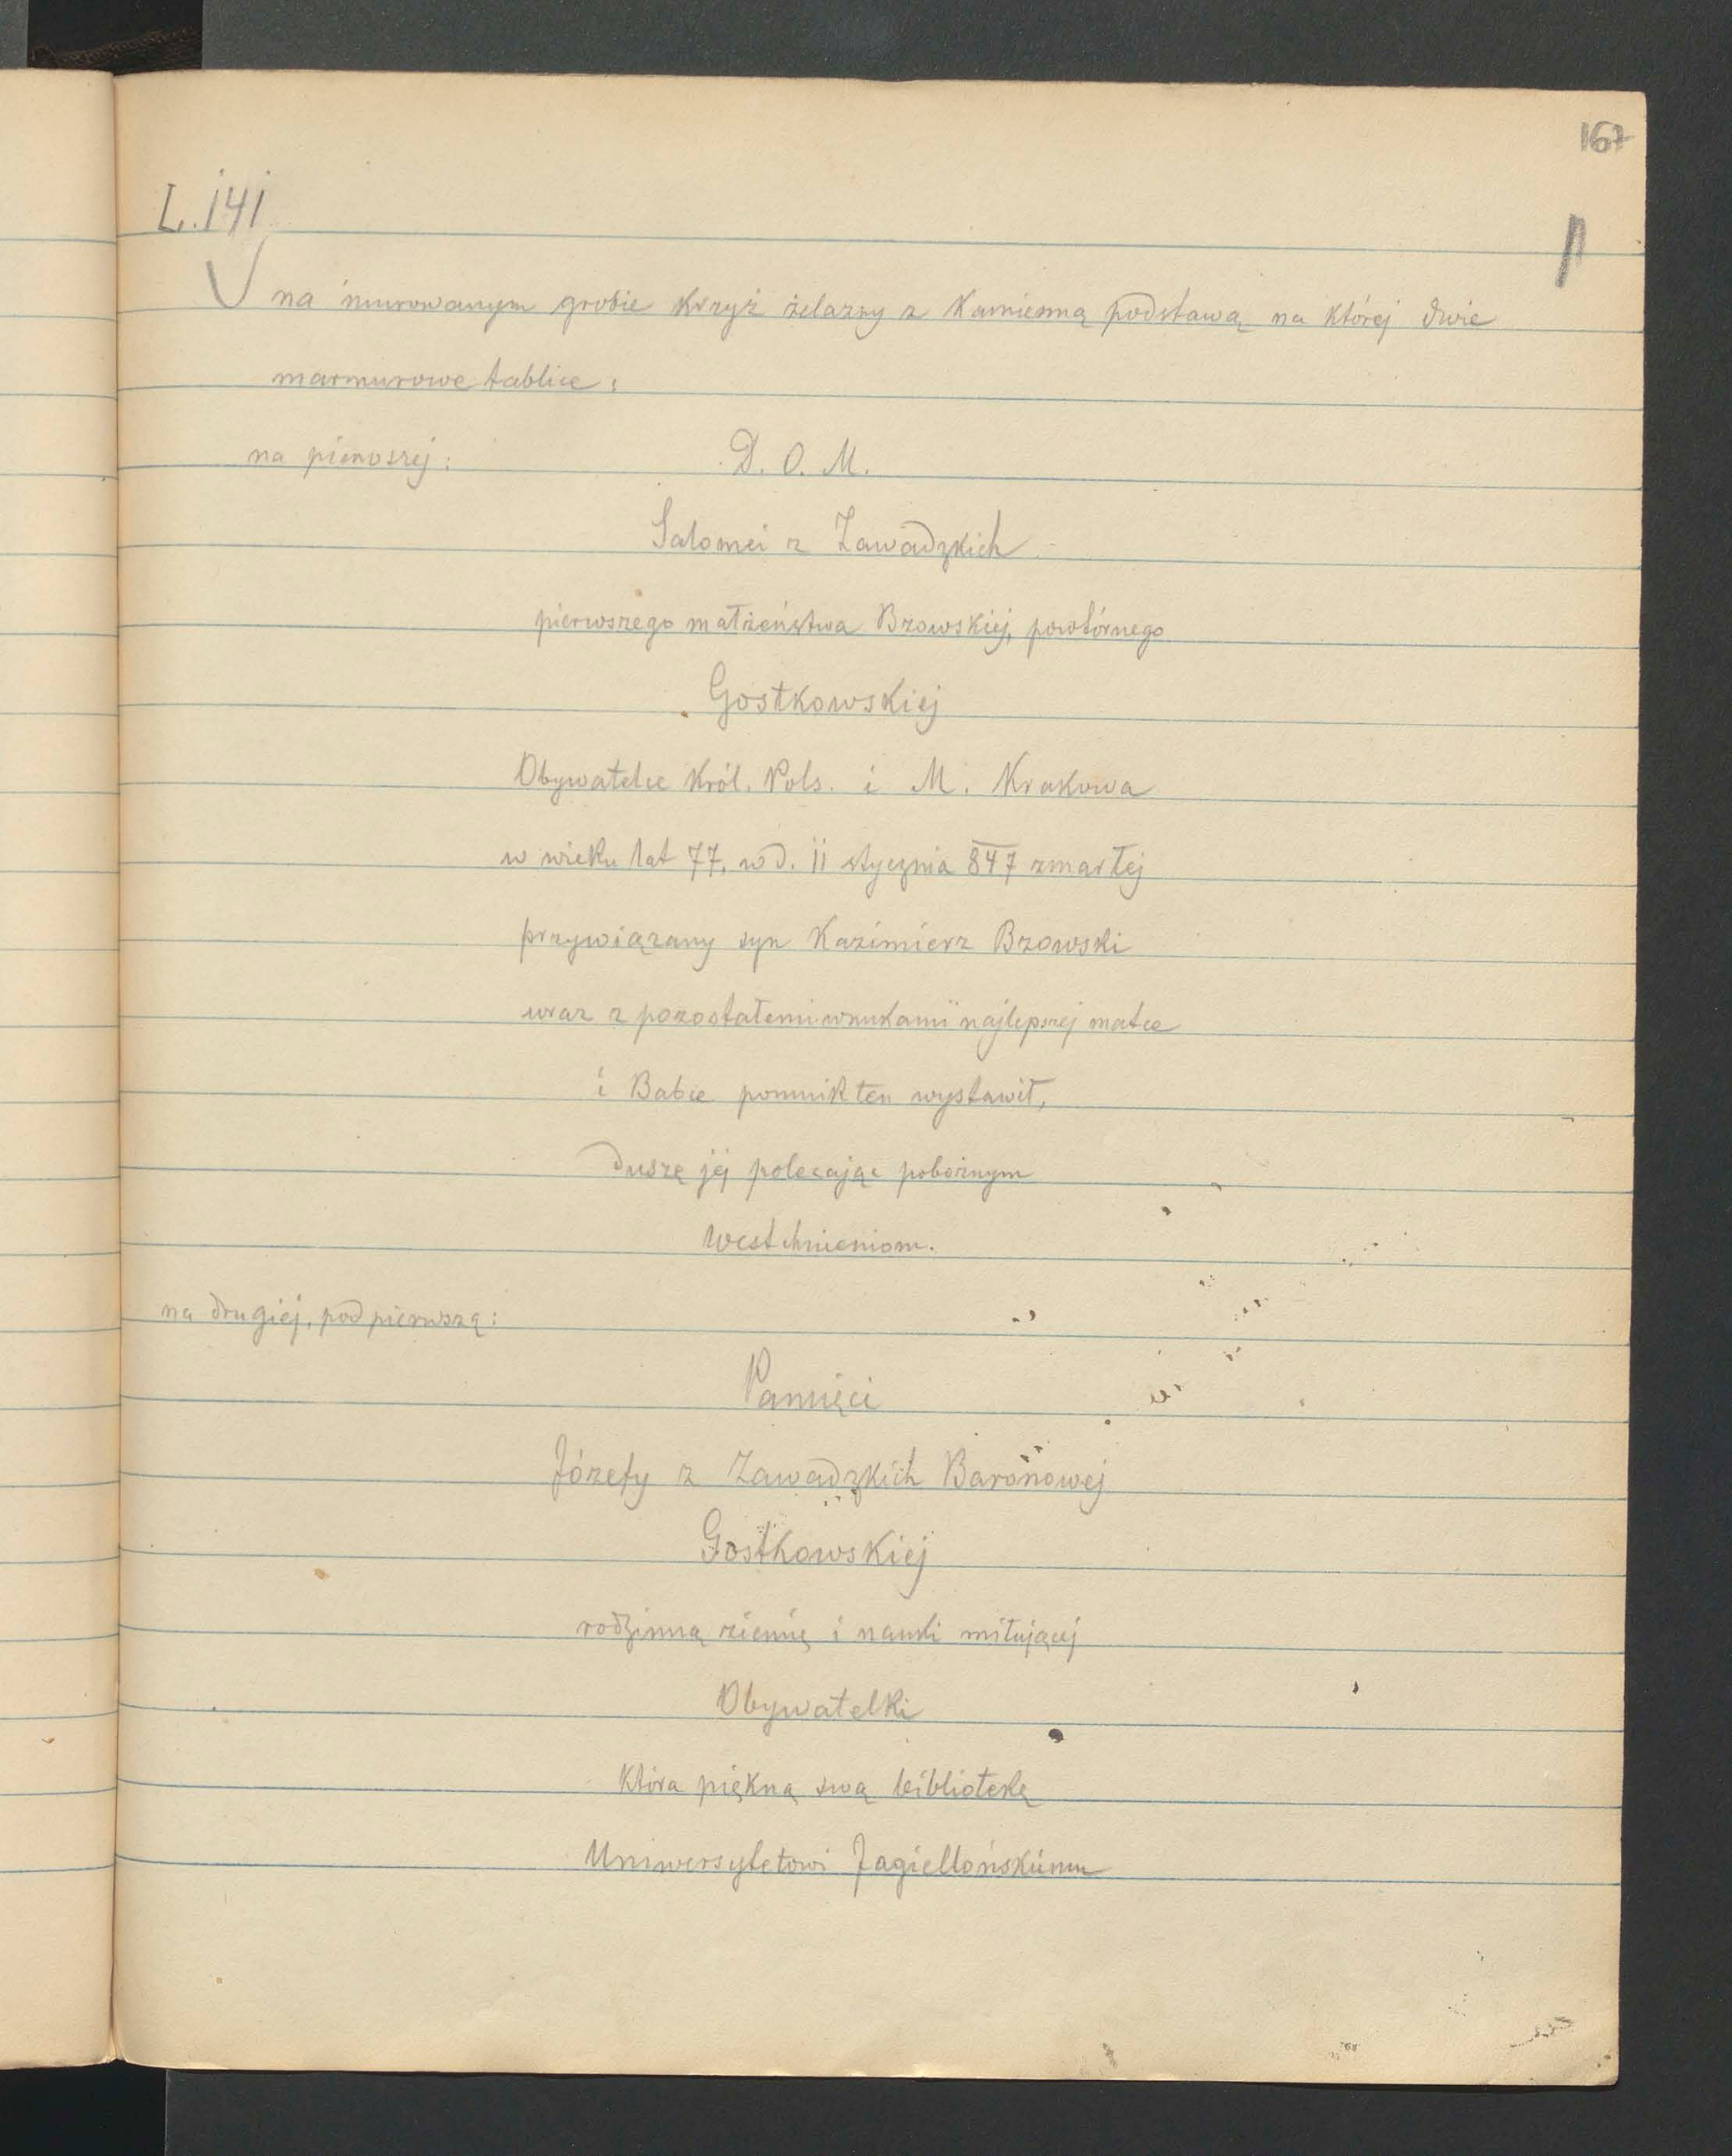 167
L. 141
na murowanym grobie krzyż żelazny z kamienną podstawą na której dwie
marmurowe tablice:
na pierwszej: D. O. M.
Salomei z Zawadzkich
pierwszego małżeństwa Bzowskiej, powtórnego
Gostkowskiej
Obywatelce Król. Pols. i M. Krakowa
w wieku lat 77, w d. 11 stycznia 847 zmarłej
przywiązany syn Kazimierz Bzowski
wraz z pozostałemi wnukami najlepszej matce
i Babce pomnik ten wystawił,
duszę jej polecając pobożnym
westchnieniom.
na drugiej, pod pierwszą:
Pamięci
Józefy z Zawadzkich Baronowej
Gostkowskiej
rodzinną ziemię i nauki miłującej
Obywatelki
która piękną swą bibliotekę
Uniwersytetowi Jagiellońskiemu